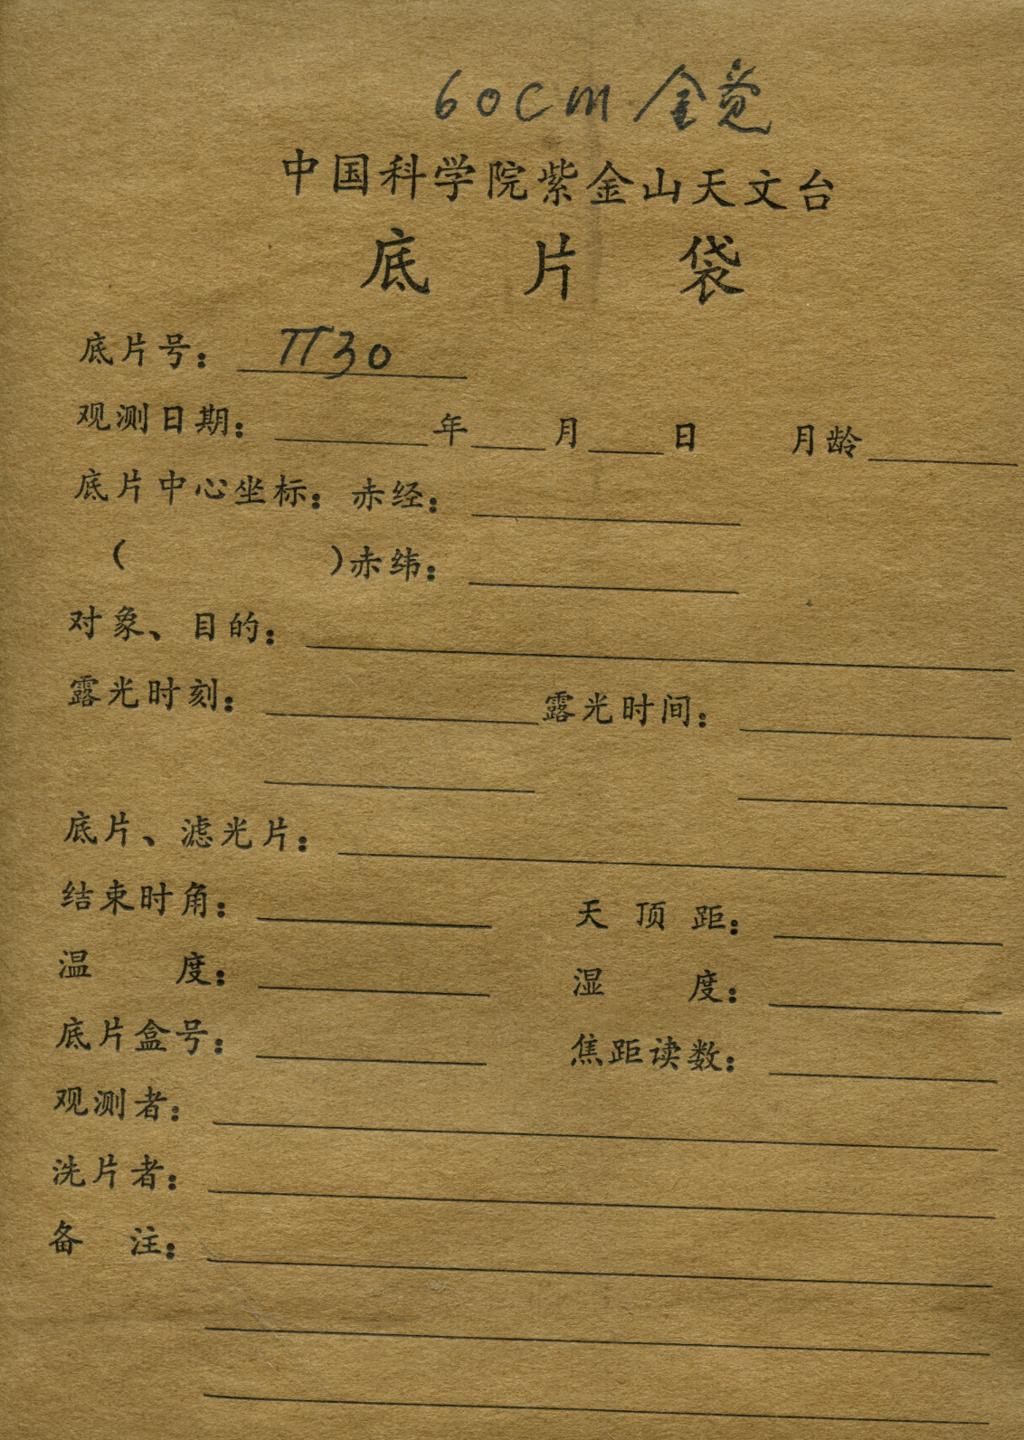 60CM
中国科学院紫金山天文台
底片袋
底片号： π30
观测日期： 年 月 日 月龄
底片中心坐标：赤经：
（ ）赤纬：
对象、目的：
露光时刻： 露光时间：
底片、滤光片：
结束时角： 天顶距：
温度： 湿度：
底片盒号： 焦距读数：
观测者：
洗片者：
备注：